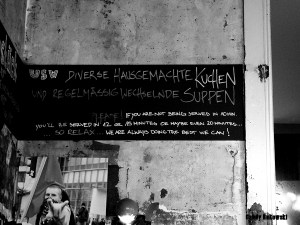 USW DIVERSE HAUSGEMACHTE KUCHEN
UND REGELMÄSSIG WECHSELNDE SUPPEN
PLEASE! IF YOU ARE NOT BEING SERVED IN 10MIN.
YOU'LL BE SERVED IN 12 OR 15 MINUTES OR MAYBE EVEN 20 MINUTES...
SO RELAX... WE ARE ALWAYS DOING THE BEST WE CAN!